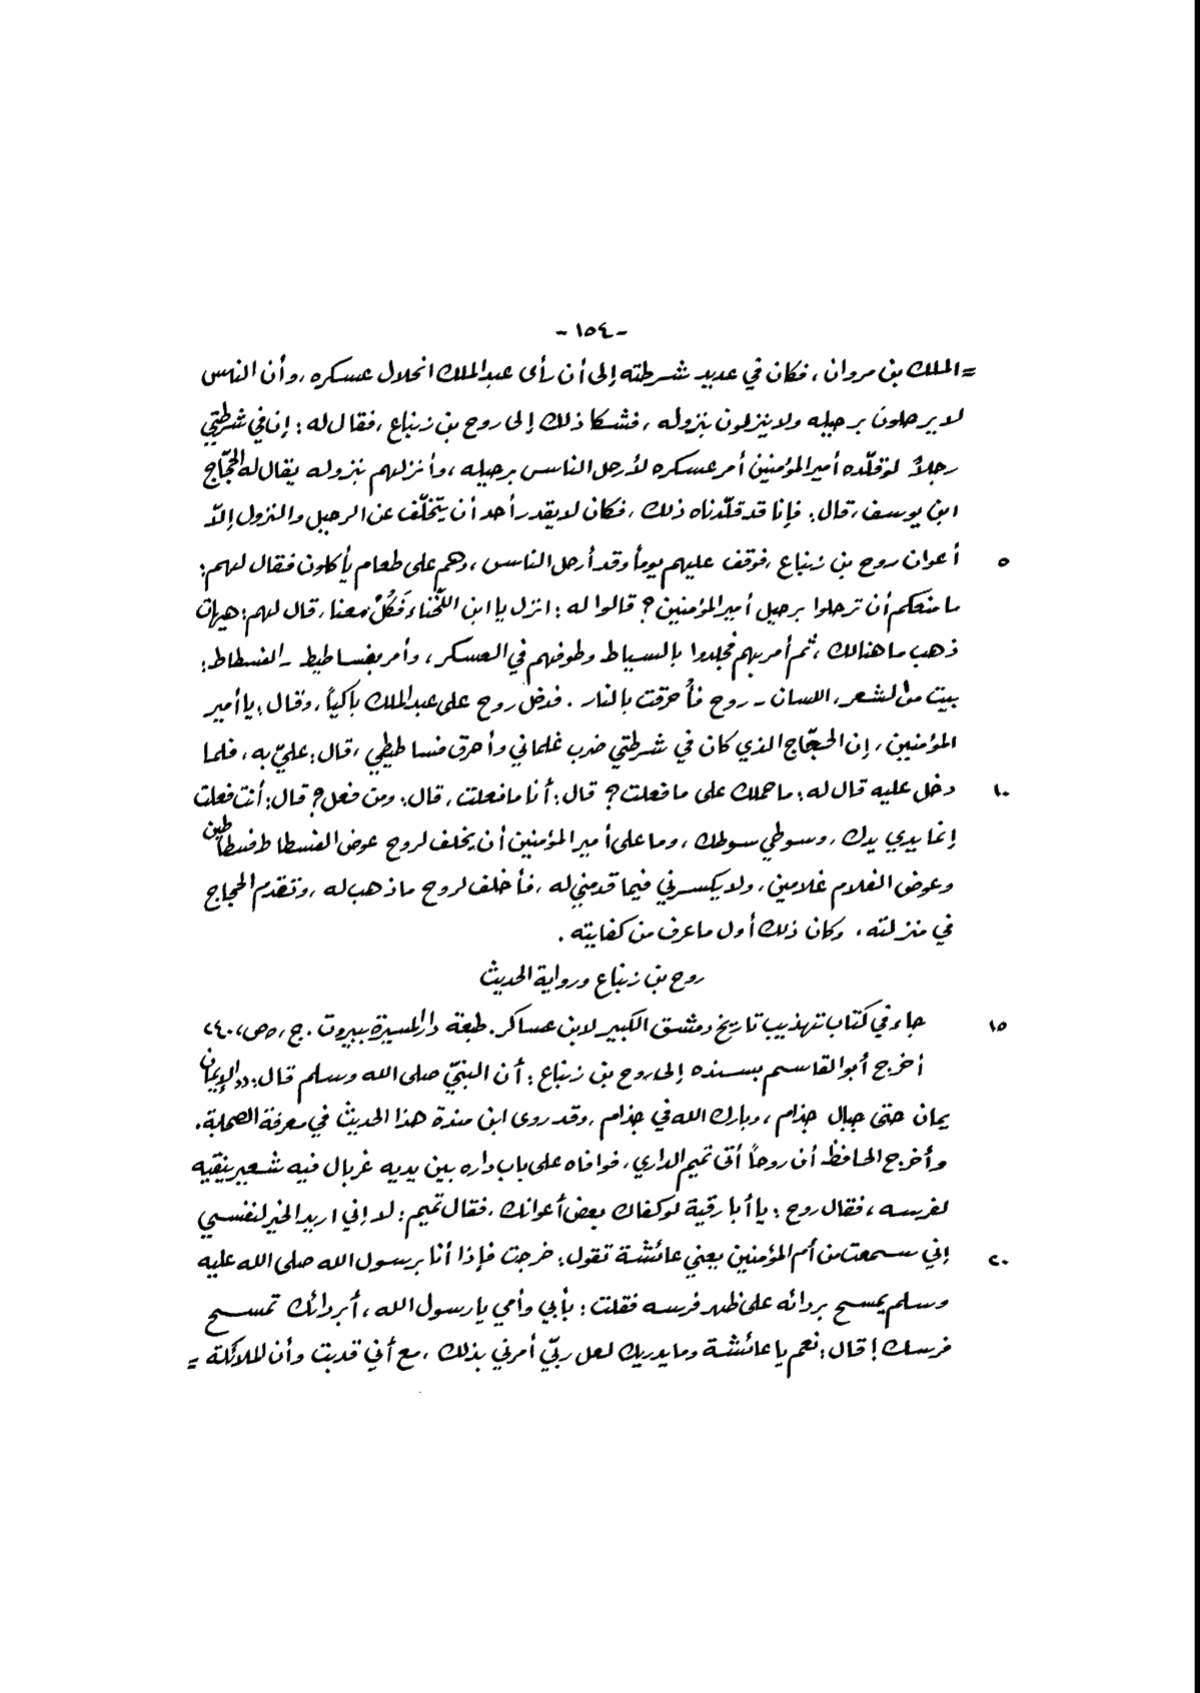 - ١٥٤ -
= الملك بن مروان ، فكان في عديد شرطته إلى أن رأى عبد الملك انحلال عسكره ، وأن الناس
لا يرحلون برحيله ولا ينزلون بنزوله ، فشكا ذلك إلى روح بن زنباع ، فقال له : إن في شرطتي
رجلاً لو قلّده أمير المؤمنين أمر عسكره لأرحل الناس برحيله ، وأنزلهم بنزوله يقال له الحجّاج
ابن يوسف ، قال : فإنا قد قلّدناه ذلك ، فكان لا يقدر أحد أن يتخلّف عن الرحيل والنزول إلاّ
٥ أعوان روح بن زنباع ، فوقف عليهم يوماً وقد أرحل الناس ، وهم على طعام يأكلون فقال لهم :
ما منعكم أن ترحلوا برحيل أمير المؤمنين ؟ قالوا له : انزل يا ابن اللّخناء فَكُلْ معنا ، قال لهم : هيهات
ذهب ما هنالك ، ثم أمر بهم فجلدوا بالسياط وطوفهم في العسكر ، وأمر بفساطيط - الفسطاط :
بيت من الشعر ، اللسان - روح فأُحرقت بالنار . فدخل روح على عبد الملك باكياً ، وقال : يا أمير
المؤمنين ، إن الحجّاج الذي كان في شرطتي ضرب غلماني وأحرق فساطيطي ، قال : عليّ به ، فلما
١٠ دخل عليه قال له : ما حملك على ما فعلت ؟ قال : أنا ما فعلت ، قال : ومن فعل ؟ قال : أنت فعلت
إنما يدي يدك ، وسوطي سوطك ، وما على أمير المؤمنين أن يخلف لروح عوض الفسطاط فسطاطين
وعوض الغلام غلامين ، ولا يكسرني فيما قدمني له ، فأخلف لروح ما ذهب له ، وتقدم الحجاج
في منزلته ، وكان ذلك أول ما عرف من كفايته .
روح بن زنباع ورواية الحديث
١٥ جاء في كتاب تهذيب تاريخ دمشق الكبير لابن عساكر . طبعة دار المسيرة ببيروت . ج ، ٥ ص ، ٢٤٠
أخرج أبو القاسم بسنده إلى روح بن زنباع : أن النبيّ صلى الله وسلم قال : « الإيمان
يمان حتى جبال جذام ، وبارك الله في جذام ، وقد روى ابن مندة هذا الحديث في معرفة الصحابة .
وأخرج الحافظ أن روحاً أتى تميم الداري ، فوافاه على باب داره بين يديه غربال فيه شعير ينقيه
لفرسه ، فقال روح : يا أبا رقية لو كفاك بعض أعوانك ، فقال تميم : لا إني اريد الخير لنفسي
٢٠ إني سمعت من أم المؤمنين يعني عائشة تقول : خرجت فإذا أنا برسول الله صلى الله عليه
وسلم يمسح بردائه على ظهر فرسه فقلت : بأبي وأمي يا رسول الله ، أبردائك تمسح
فرسك ! قال : نعم يا عائشة وما يدريك لعل ربّي أمرني بذلك ، مع أني قد بت وأن الملائكة =